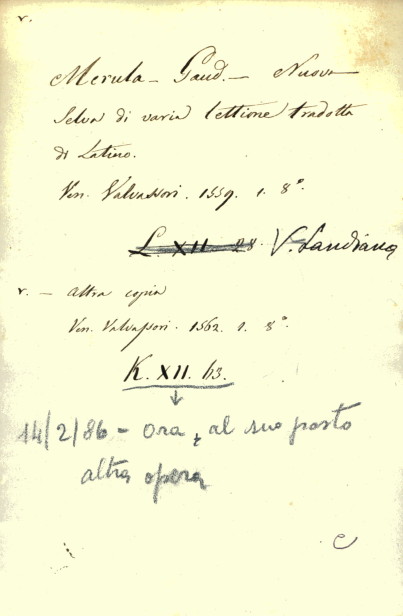 v.
Merula - Gaud. - Nuova
Selva di varia lettione tradotta
di Latino.
Ven. Valvassori. 1559. 1. 8°.
L. XII. 28. V. Landiana
v. - altra copia
Ven. Valvassori. 1562. 1. 8°.
K. XII. 63.
14/2/86 - ora, al suo posto
altra opera
C